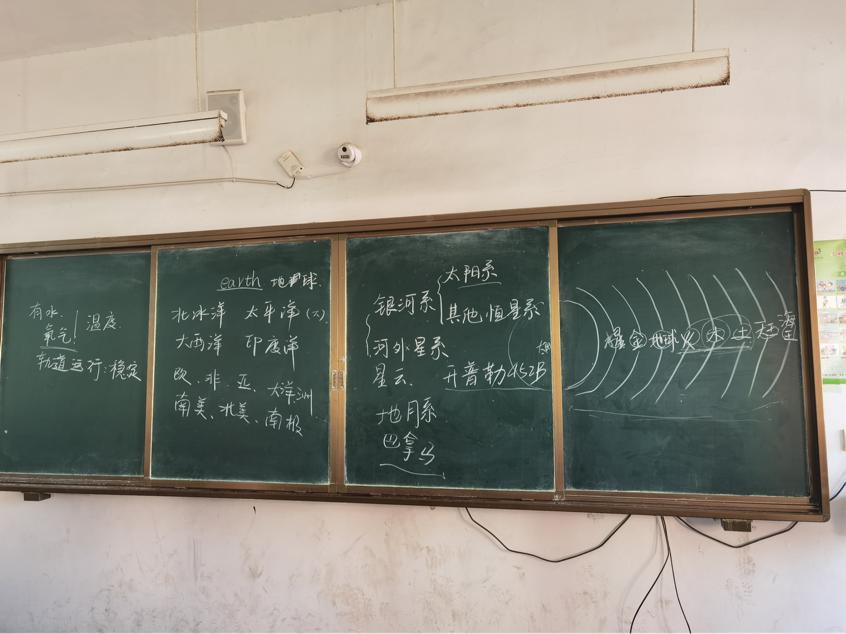 有水
氧气
温度
轨道运行:稳定
earth 地球
北冰洋 太平洋(大)
大西洋 印度洋
欧、非、亚、大洋洲
南美、北美、南极
银河系
太阳系
其他恒星系
河外星系
星云 开普勒452B
地月系
巴拿马
金地球火木土天海王